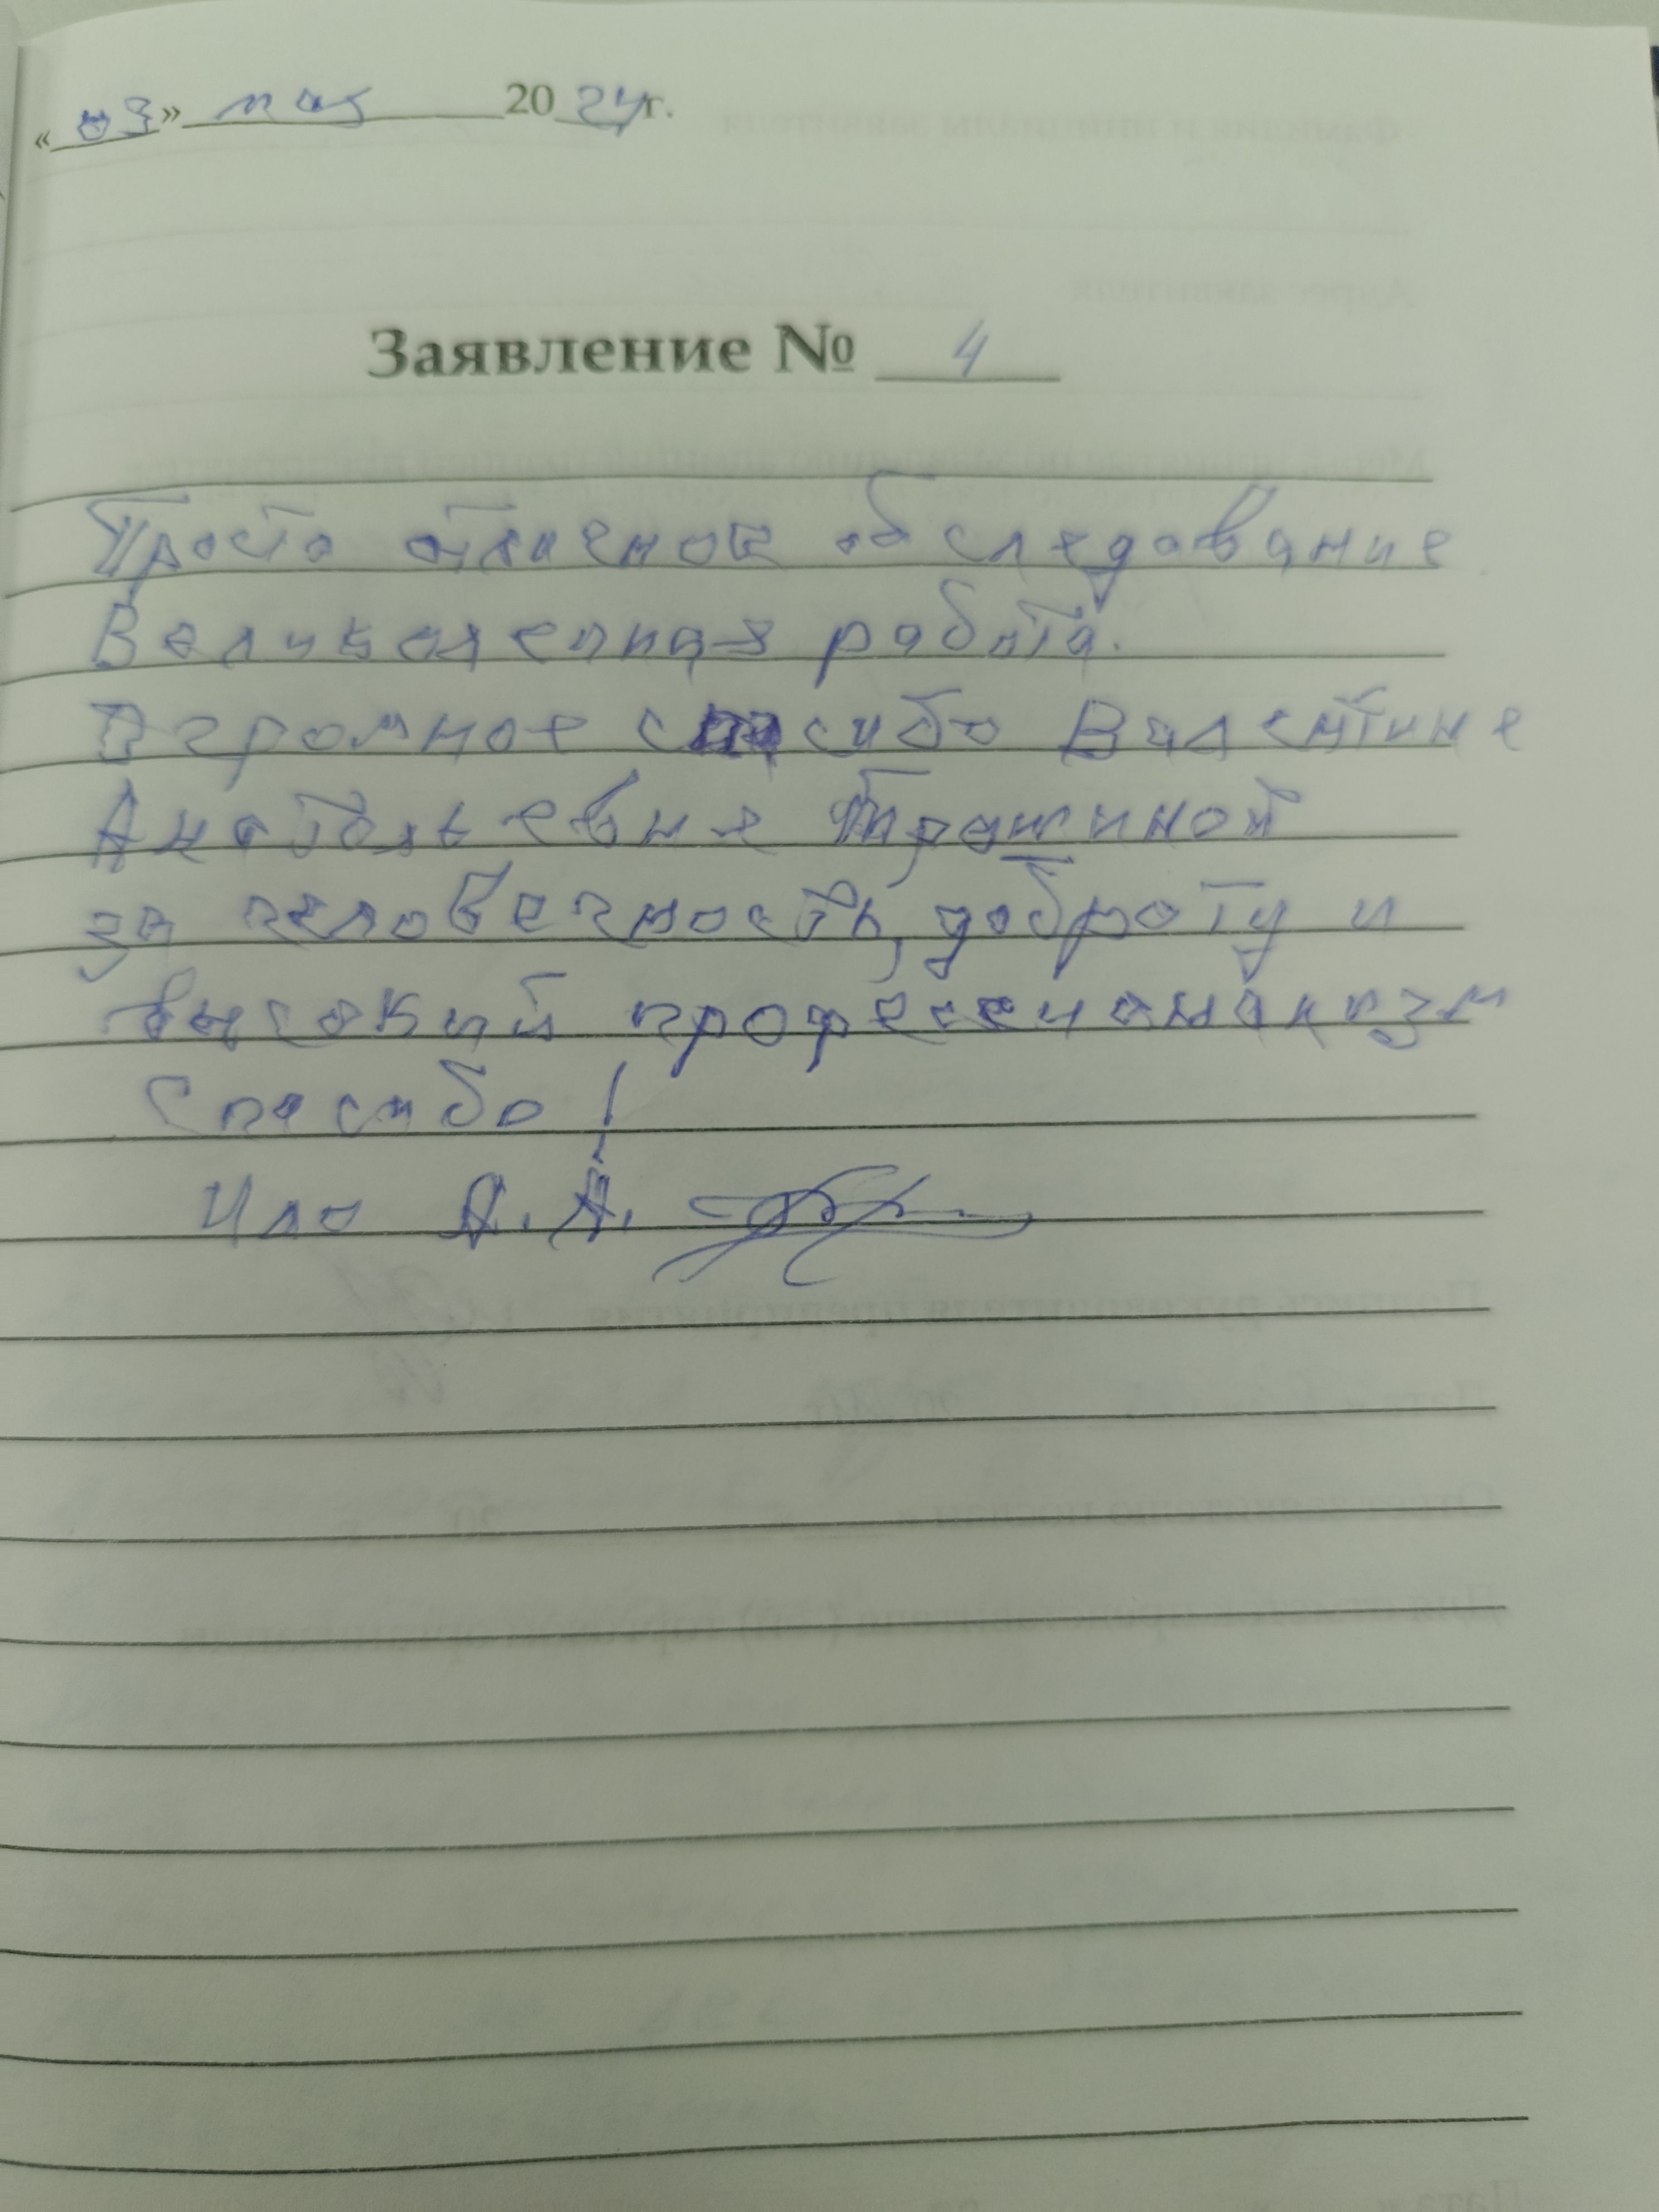 «03» мая 2024г.
Заявление № 4
Просто отличное обследование
Великолепная работа.
Огромное спасибо Валентине
Анатольевне
за человечность, доброту и
высокий професионализм
Спасибо!
А.А.